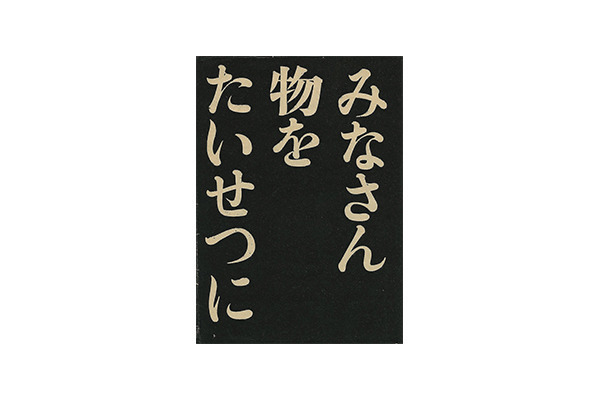 みなさん
物を
たいせつに